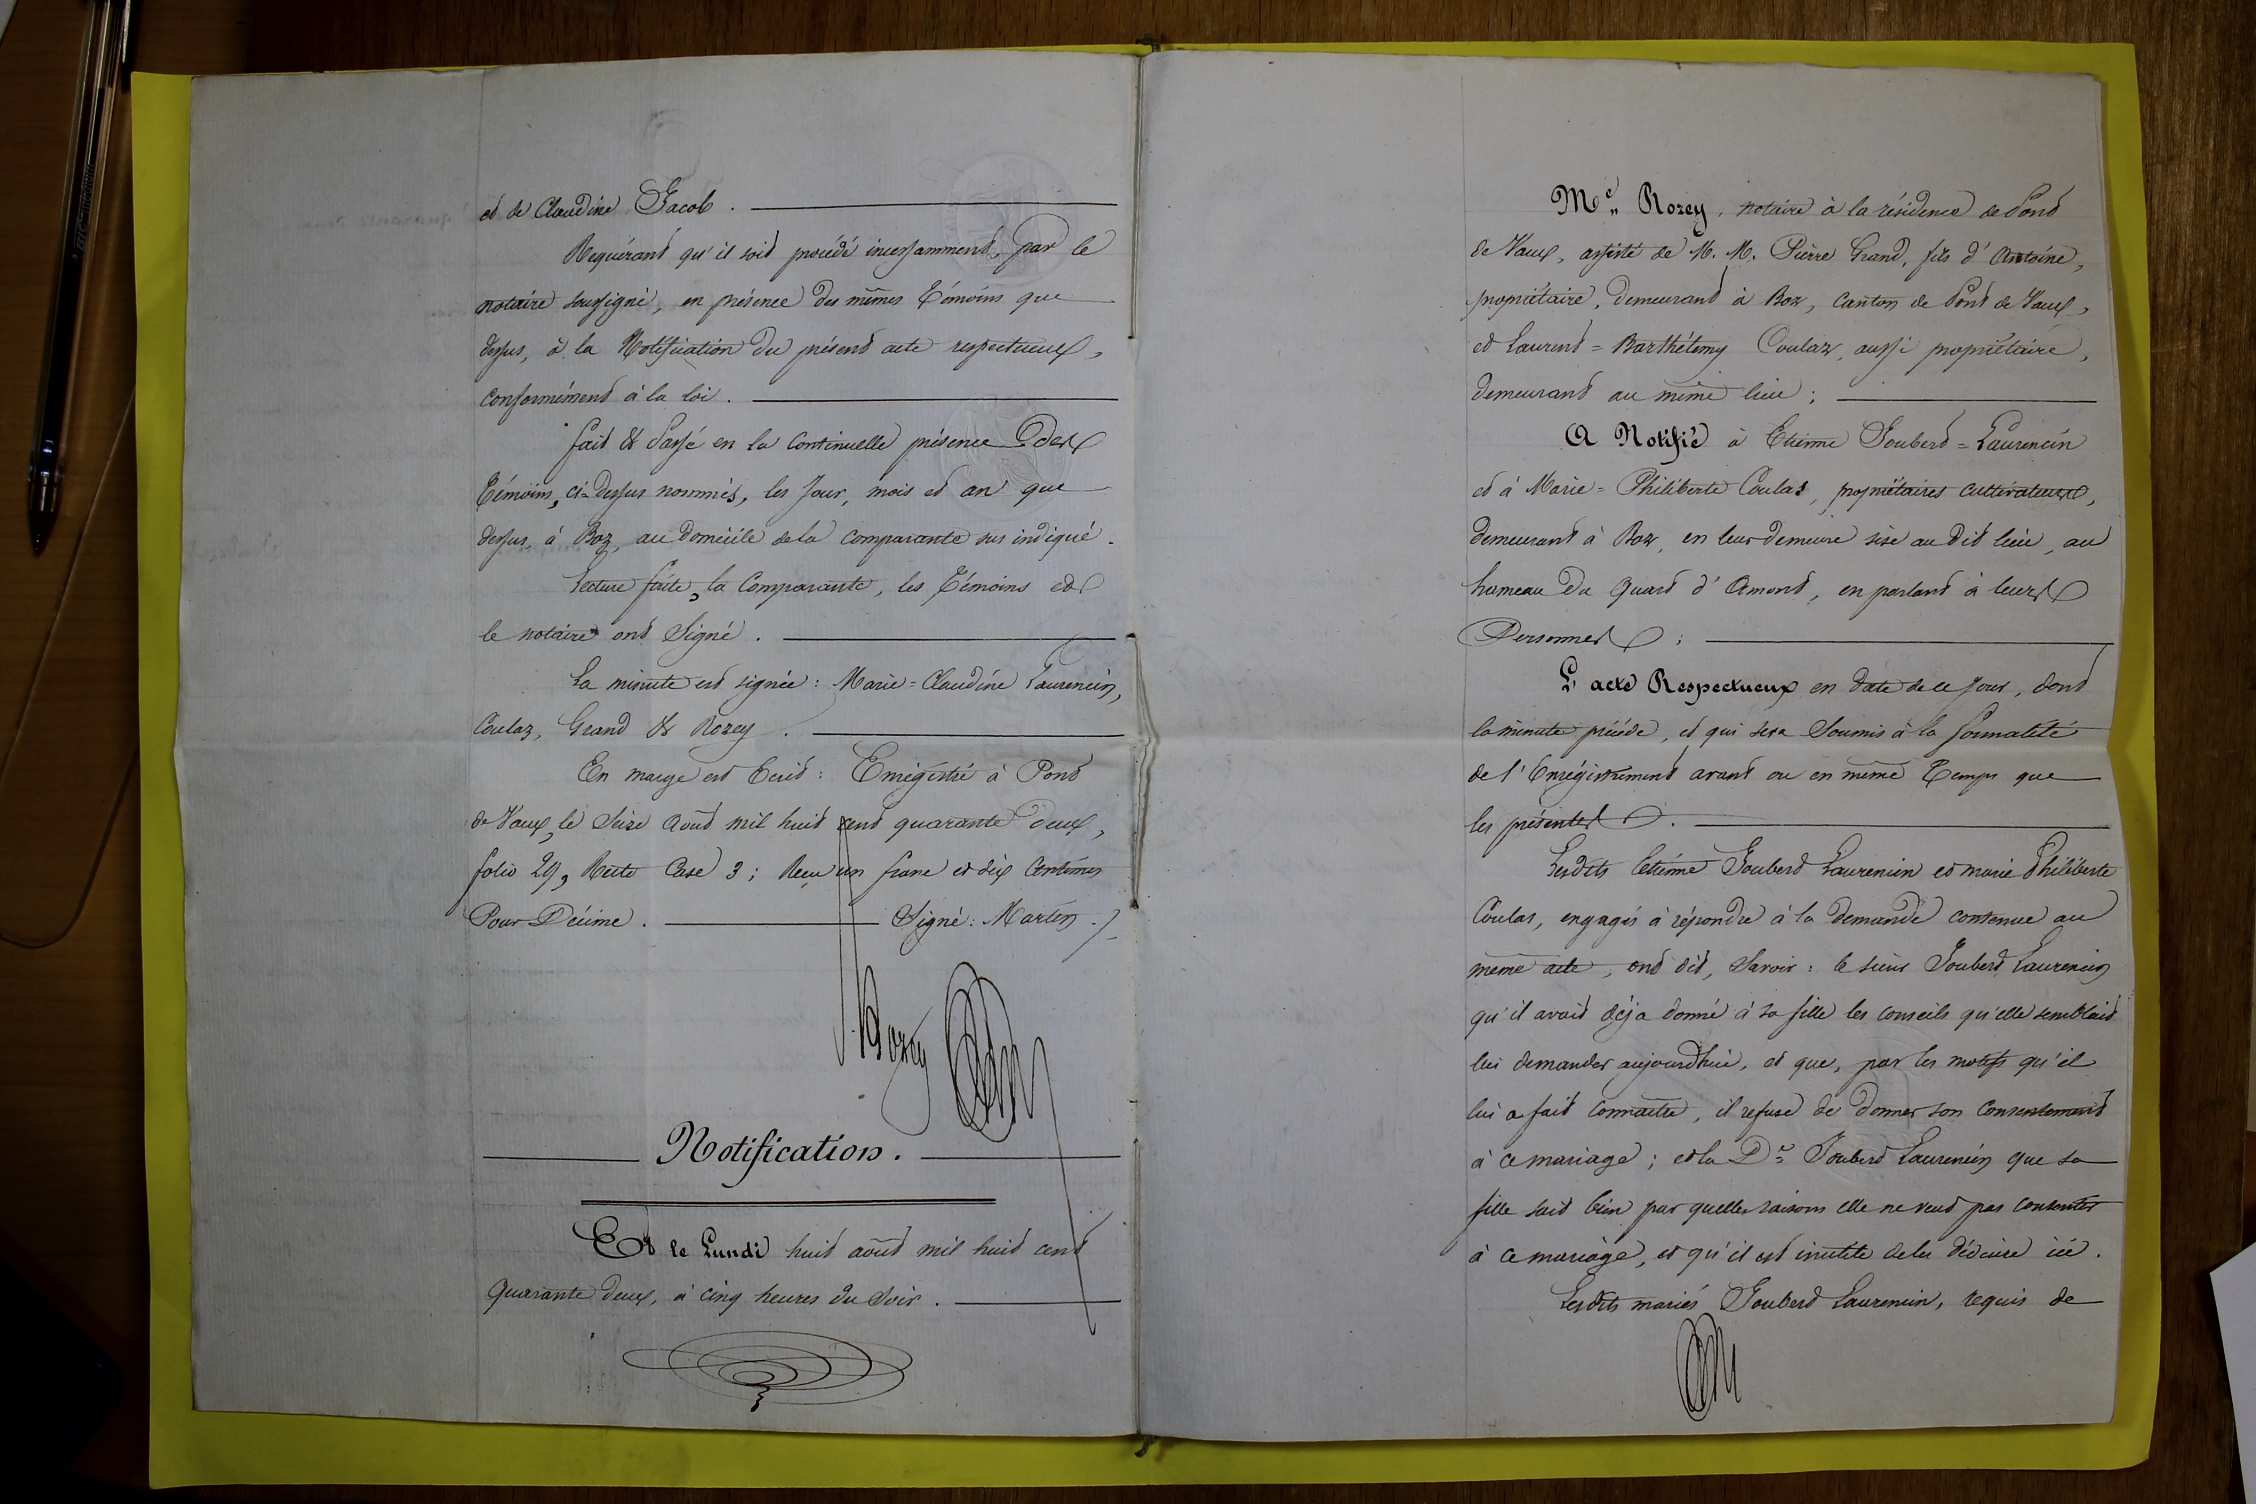 et de Claudine Jacob.
Requérant qu'il soit procédé incessamment, par le
notaire soussigné, en présence des mêmes Témoins que
dessus, à la Notification du présent acte respectueux,
conformément à la loi.
fait & Passé en la continuelle présence des
Témoins, ci-dessus nommés, les Jour, mois et an que
dessus, à Boz, au Domicile de la comparante sus indiqué.
Lecture faite, la Comparante, les Témoins et
le notaire ont Signé.
La minute est signée : Marie=Claudine Laurencin,
Coulas, Grand & Rozey.
En marge est Ecrit : Enregistré à Pont
de Vaux, le Seize Août mil huit cent quarante deux,
folio 29, Recto Case 3 ; Reçu un franc et dix Centimes
Pour Décime. Signé : Martin ./.
Rozey
Notification.
Et le Lundi huit août mil huit cent
quarante deux, à cinq heures du Soir.
Me. Rozey, notaire à la résidence de Pont
de Vaux, assisté de M. M. Pierre Grand, fils d'Antoine,
propriétaire, demeurant à Boz, canton de Pont de Vaux,
et Laurent=Barthélemy Coulas, aussi propriétaire,
demeurant au même lieu ;
A Notifié à Etienne Joubert=Laurencin
et à Marie=Philiberte Coulas, propriétaires cultivateurs,
demeurant à Boz, en leur demeure sise au dit lieu, au
hameau du Quart d'Amont, en parlant à leurs
Personnes ;
L'acte Respectueux en date de ce Jour, dont
la minute précède, et qui sera Soumis à la formalité
de l'Enregistrement avant ou en même Temps que
les présentes.
Lesdits Etienne Joubert Laurencin et marie Philiberte
Coulas, engagés à répondre à la demande contenue au
même acte, ont dit, Savoir : le sieur Joubert Laurencin
qu'il avait déja donné à sa fille les conseils qu'elle semblait
lui demander aujourd'hui, et que, par les motifs qu'il
lui a fait connaitre, il refuse de donner son consentement
à ce mariage ; et la De Joubert Laurencin que sa
fille sait bien par quelles raisons elle ne veut pas consentir
à ce mariage, et qu'il est inutile de les déduire ici.
Lesdits mariés Joubert Laurencin, requis de